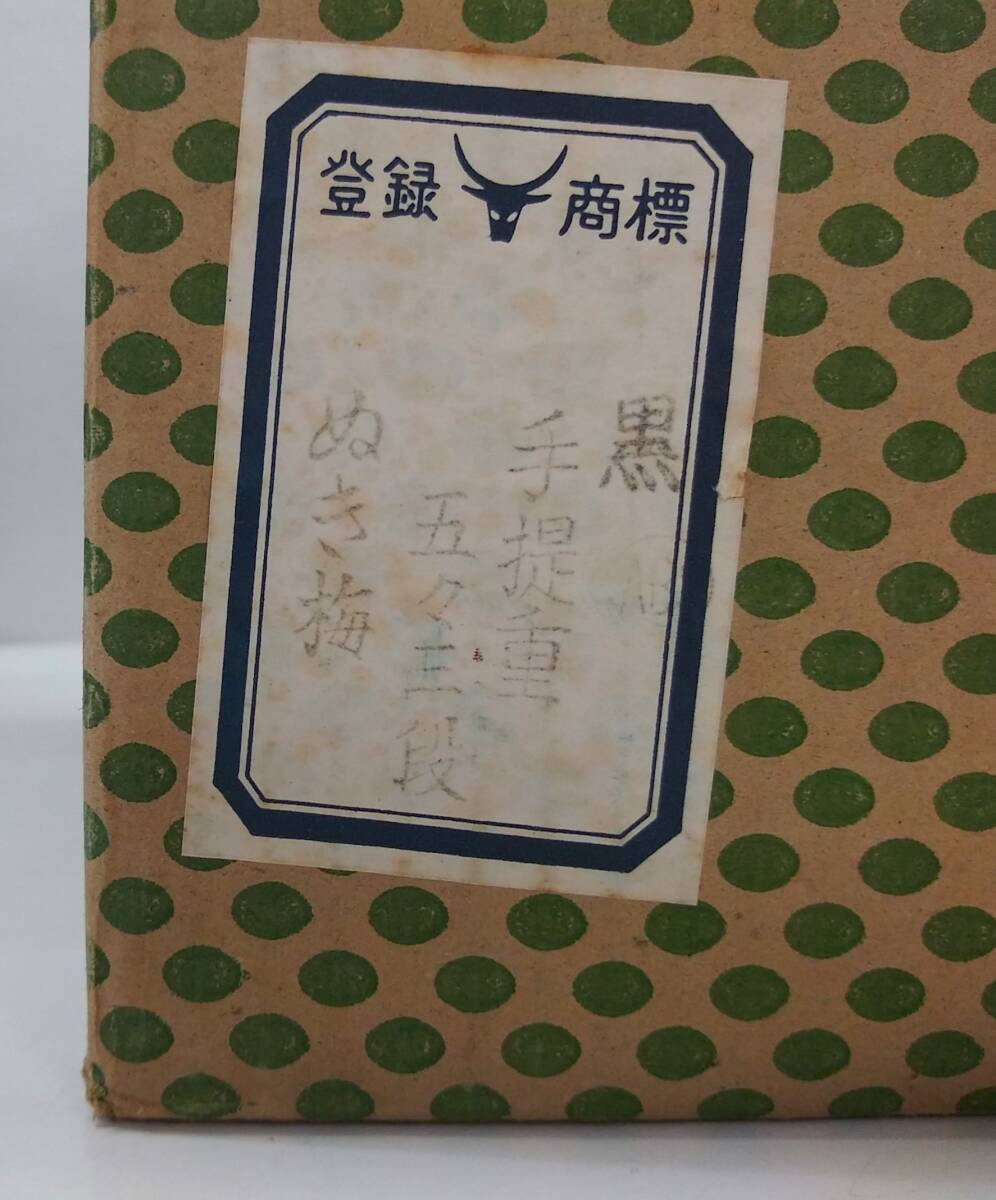 登録 商標
黒
手提重
五々三段
ぬき梅